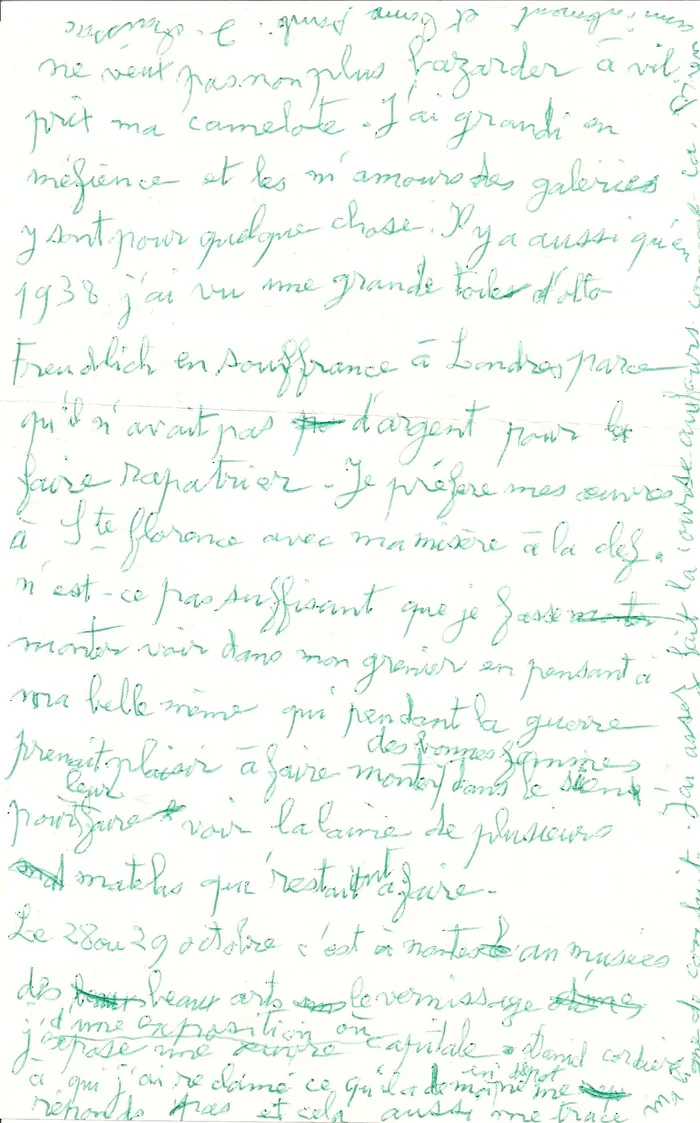 ne veut pas non plus bazarder à vil
prix ma camelote. J'ai grandi en
méfience et les m'amours des galeries
y sont pour quelque chose. Il y a aussi qu'en
1938 j'ai vu une grande toile d'otto
Freudlich en souffrance à Londres parce
qu'il n'avait pas d'argent pour la
faire rapatrier - Je préfère mes œuvres
à Ste florence avec ma misère à la clef.
n'est-ce pas suffisant que je fasse
monter voir dans mon grenier en pensant à
ma belle mème qui pendant la guerre
prenait plaisir à faire monter des bonnes femmes dans le sien
pour leur faire voir la laine de plusieurs
matelas qui restaient à faire.
Le 28 ou 29 octobre c'est à nantes au musées
des beaux arts le vernissage
d'une exposition où
j'expose une œuvre capitale. Daniel cordier
à qui j'ai reclamé ce qu'il a de moi en dépot ne me
réponds pas et cela aussi me trace
J'ai assez fait la course au fours comme ca.